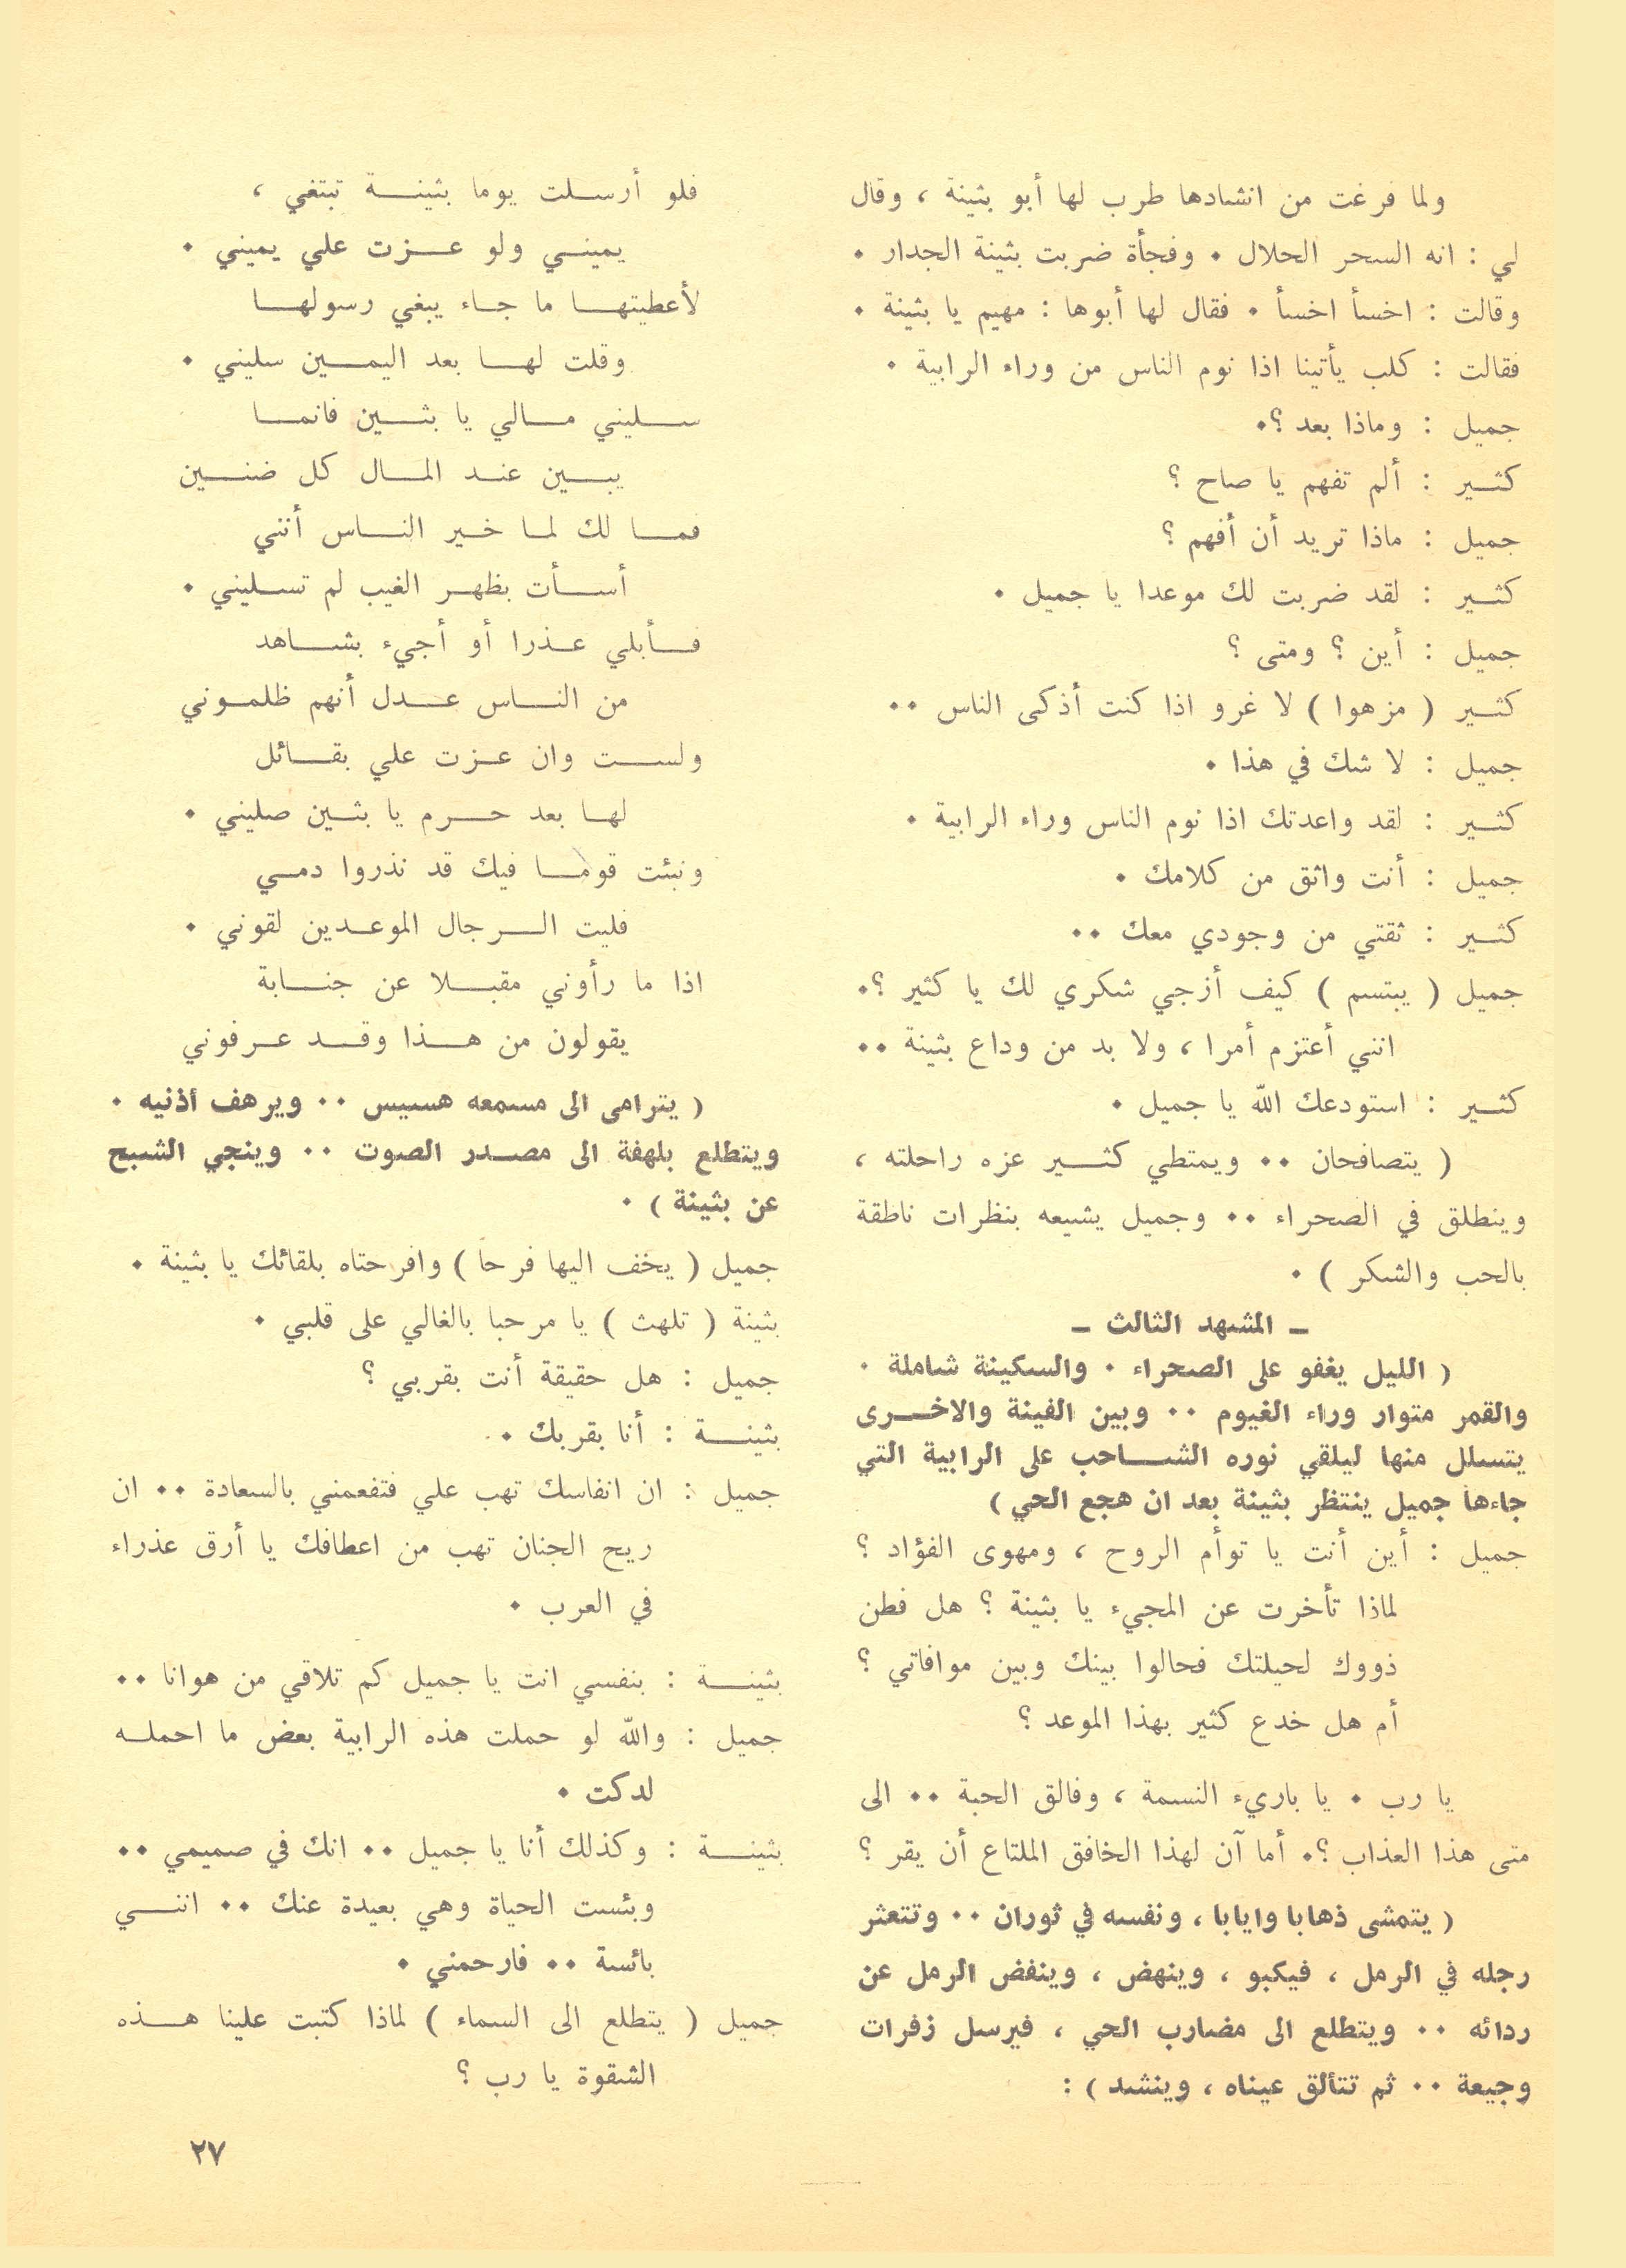 ولما فرغت من انشادها طرب لها أبو بثينة ، وقال
لي : انه السحر الحلال . وفجأة ضربت بثينة الجدار .
وقالت : اخسأ اخسأ . فقال لها أبوها : مهيم يا بثينة .
فقالت : كلب يأتينا اذا نوم الناس من وراء الرابية .
جميل : وماذا بعد ؟.
كثير : ألم تفهم يا صاح ؟
جميل : ماذا تريد أن أفهم ؟
كثير : لقد ضربت لك موعدا يا جميل .
جميل : أين ؟ ومتى ؟
كثير ( مزهوا ) لا غرو اذا كنت أذكى الناس ..
جميل : لا شك في هذا .
كثير : لقد واعدتك اذا نوم الناس وراء الرابية .
جميل : أنت واثق من كلامك .
كثير : ثقتي من وجودي معك ..
جميل ( يبتسم ) كيف أزجي شكري لك يا كثير ؟.
انني أعتزم أمرا ، ولا بد من وداع بثينة ..
كثير : استودعك الله يا جميل .
( يتصافحان .. ويمتطي كثير عزه راحلته ،
وينطلق في الصحراء .. وجميل يشيعه بنظرات ناطقة
بالحب والشكر ) .
ـ المشهد الثالث ـ
( الليل يغفو على الصحراء . والسكينة شاملة .
والقمر متوار وراء الغيوم .. وبين الفينة والاخرى
يتسلل منها ليلقي نوره الشاحب على الرابية التي
جاءها جميل ينتظر بثينة بعد ان هجع الحي )
جميل : أين أنت يا توأم الروح ، ومهوى الفؤاد ؟
لماذا تأخرت عن المجيء يا بثينة ؟ هل فطن
ذووك لحيلتك فحالوا بينك وبين موافاتي ؟
أم هل خدع كثير بهذا الموعد ؟
يا رب . يا باريء النسمة ، وفالق الحبة .. الى
متى هذا العذاب ؟. أما آن لهذا الخافق الملتاع أن يقر ؟
( يتمشى ذهابا وايابا ، ونفسه في ثوران .. وتتعثر
رجله في الرمل ، فيكبو ، وينهض ، وينفض الرمل عن
ردائه .. ويتطلع الى مضارب الحي ، فيرسل زفرات
وجيعة .. ثم تتألق عيناه ، وينشد ) :
فلو أرسلت يوما بثينة تبتغي ،
يميني ولو عزت علي يميني .
لأعطيتها ما جاء يبغي رسولها
وقلت لها بعد اليمين سليني .
سليني مالي يا بثين فانما
يبين عند المال كل ضنين
فما لك لما خير الناس أنني
أسأت بظهر الغيب لم تسليني .
فأبلي عذرا أو أجيء بشاهد
من الناس عدل أنهم ظلموني
ولست وان عزت علي بقائل
لها بعد حرم يا بثين صليني .
ونبئت قوما فيك قد نذروا دمي
فليت الرجال الموعدين لقوني .
اذا ما رأوني مقبلا عن جنابة
يقولون من هذا وقد عرفوني
( يترامى الى مسمعه هسيس .. ويرهف أذنيه .
ويتطلع بلهفة الى مصدر الصوت .. وينجي الشبح
عن بثينة ) .
جميل ( يخف اليها فرحا ) وافرحتاه بلقائك يا بثينة .
بثينة ( تلهث ) يا مرحبا بالغالي على قلبي .
جميل : هل حقيقة أنت بقربي ؟
بثينة : أنا بقربك .
جميل : ان انفاسك تهب علي فتفعمني بالسعادة .. ان
ريح الجنان تهب من اعطافك يا أرق عذراء
في العرب .
بثينة : بنفسي انت يا جميل كم تلاقي من هوانا ..
جميل : والله لو حملت هذه الرابية بعض ما احمله
لدكت .
بثينة : وكذلك أنا يا جميل .. انك في صميمي ..
وبئست الحياة وهي بعيدة عنك .. انني
بائسة .. فارحمني .
جميل ( يتطلع الى السماء ) لماذا كتبت علينا هذه
الشقوة يا رب ؟
٢٧